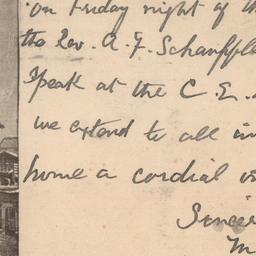 on Friday night of th
the Rev. A. F. Schauffle
speak at the C. E.
we extend to all in
home a cordial
Sincer
M